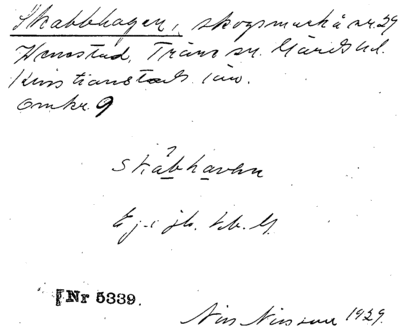 Skabbhagen, skogsmark å nr. 29
Hemstad, Trän sn. Gärds hd.
Kristianstads län.
omkr. 9
skabhavn
Ej i jb. l. b. G.
Nr 5339.
Nils Nilsson 1929.